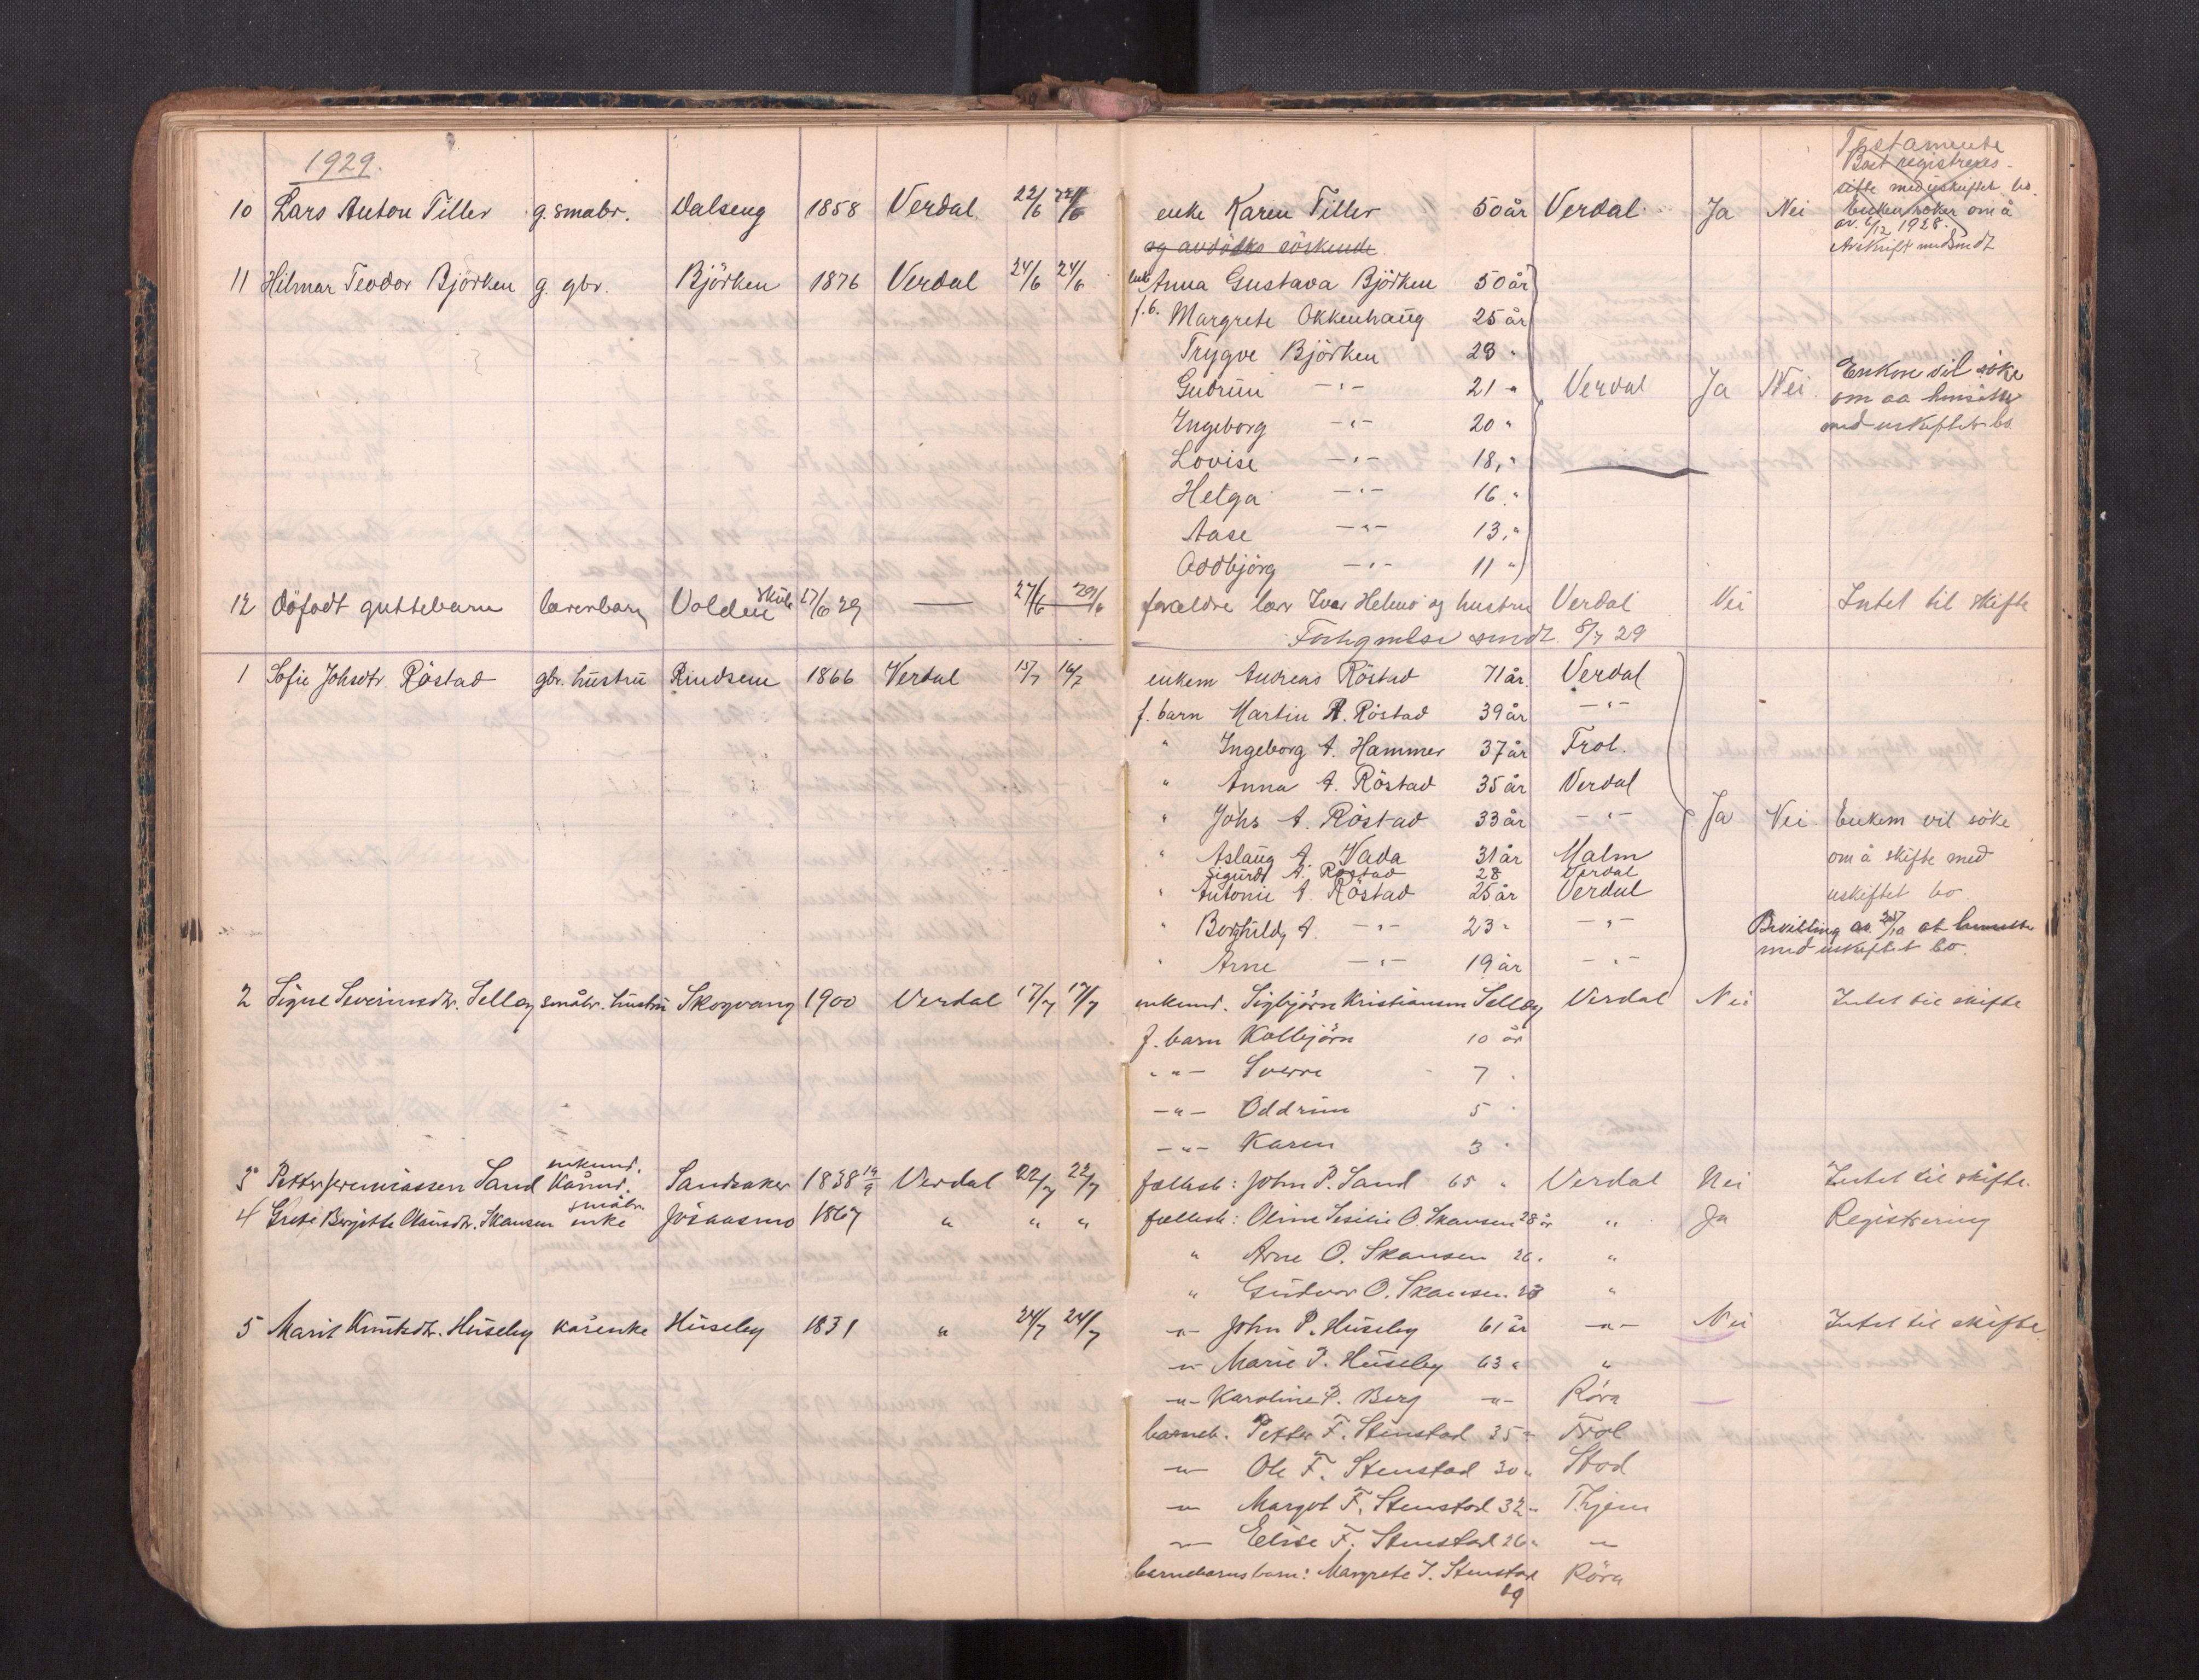 1929.
Testamente
Boet registreres
sitte med uskiftet bo.
10 Lars Anton Tiller g. småbr. Dalseng 1858 Verdal 22/6 22/6 enke Karen Tiller 50 år Verdal Ja Nei Enken söker om å
av 6/12 1928.
og avdödes söskende Avskrift medsendt
11 Hilmar Teodor Björken g. gbr. Björken 1876 Verdal 24/6 24/6 enke Anna Gustava Björken 50 år
f.b. Margrete Okkenhaug 25 år
Trygve Björken 23 "
Gudrun -"- 21 " Verdal Ja Nei. Enken vil söke
om aa hensitte
Ingeborg -"- 20 " med uskiftet bo
Lovise -"- 18 "
Helga -"- 16 "
Aase -"- 13 "
Oddbjörg -"- 11 "
12 Döfödt guttebarn lærerbarn Volden skole 27/6 29 — 27/6 29/6 forældre lærer Ivar Helmo og hustru Verdal Nei Intet til skifte
sendt 8/7 29
1 Sofie Johsdtr. Röstad gbr. hustru Rindsem 1866 Verdal 15/7 16/7 enkem Andreas Röstad 71 år Verdal
f. barn Martin A. Röstad 39 år -"-
" Ingeborg A. Hammer 37 år Frol.
" Anna A. Röstad 35 år Verdal
" Johs A. Röstad 33 år -"- Ja Nei. Enkem vil söke
" Aslaug A. Vada 31 år Malm om å skifte med
Sigurd A. Röstad 28 Verdal
" Antonie A. Röstad 25 år Verdal uskiftet bo
" Borghild A. -"- 23 " -"- Bevilling av 20/10 at hensitte
med uskiftet bo.
" Arne -"- 19 år -"-
2 Signe Severinsdtr. Selley småbr. hustru Skogvang 1900 Verdal 17/7 17/7 enkemd. Sigbjörn Kristiansen Selley Verdal Nei Intet til skifte
f. barn Kolbjörn 10 år
-"- Sverre 7 "
-"- Oddrun 5 "
-"- Karen 3 "
enkemd.
3 Petter Jeremiassen Sand kårmd. Sandsaker 1838 19/9 Verdal 22/7 22/7 fællesb: John P. Sand 65 " Verdal Nei Intet til skifte.
småbr.
4 Grete Bergitte Olausdtr. Skansen enke Jösaasmo 1867 " " " fællesb: Oline Sesilie O. Skansen 28 år " Ja Registrering
" Arne O. Skansen 26 " "
" Gudvor O. Skansen 23 "
5 Marit Knutsdtr. Huseby kårenke Huseby 1831 " 24/7 24/7 -"- John P. Huseby 61 år -"- Nei Intet til skifte
-"- Marie P. Huseby 63 " "
-"- Karoline P. Berg -"- Röra
barneb. Petter F. Stenstad 35 " Frol
-"- Ole F. Stenstad 30 " Stod
-"- Margot F. Stenstad 32 " T.hjem
-"- Elise F. Stenstad 26 " -"-
barnebarnsbarn: Margrete J. Stenstad Röra
19